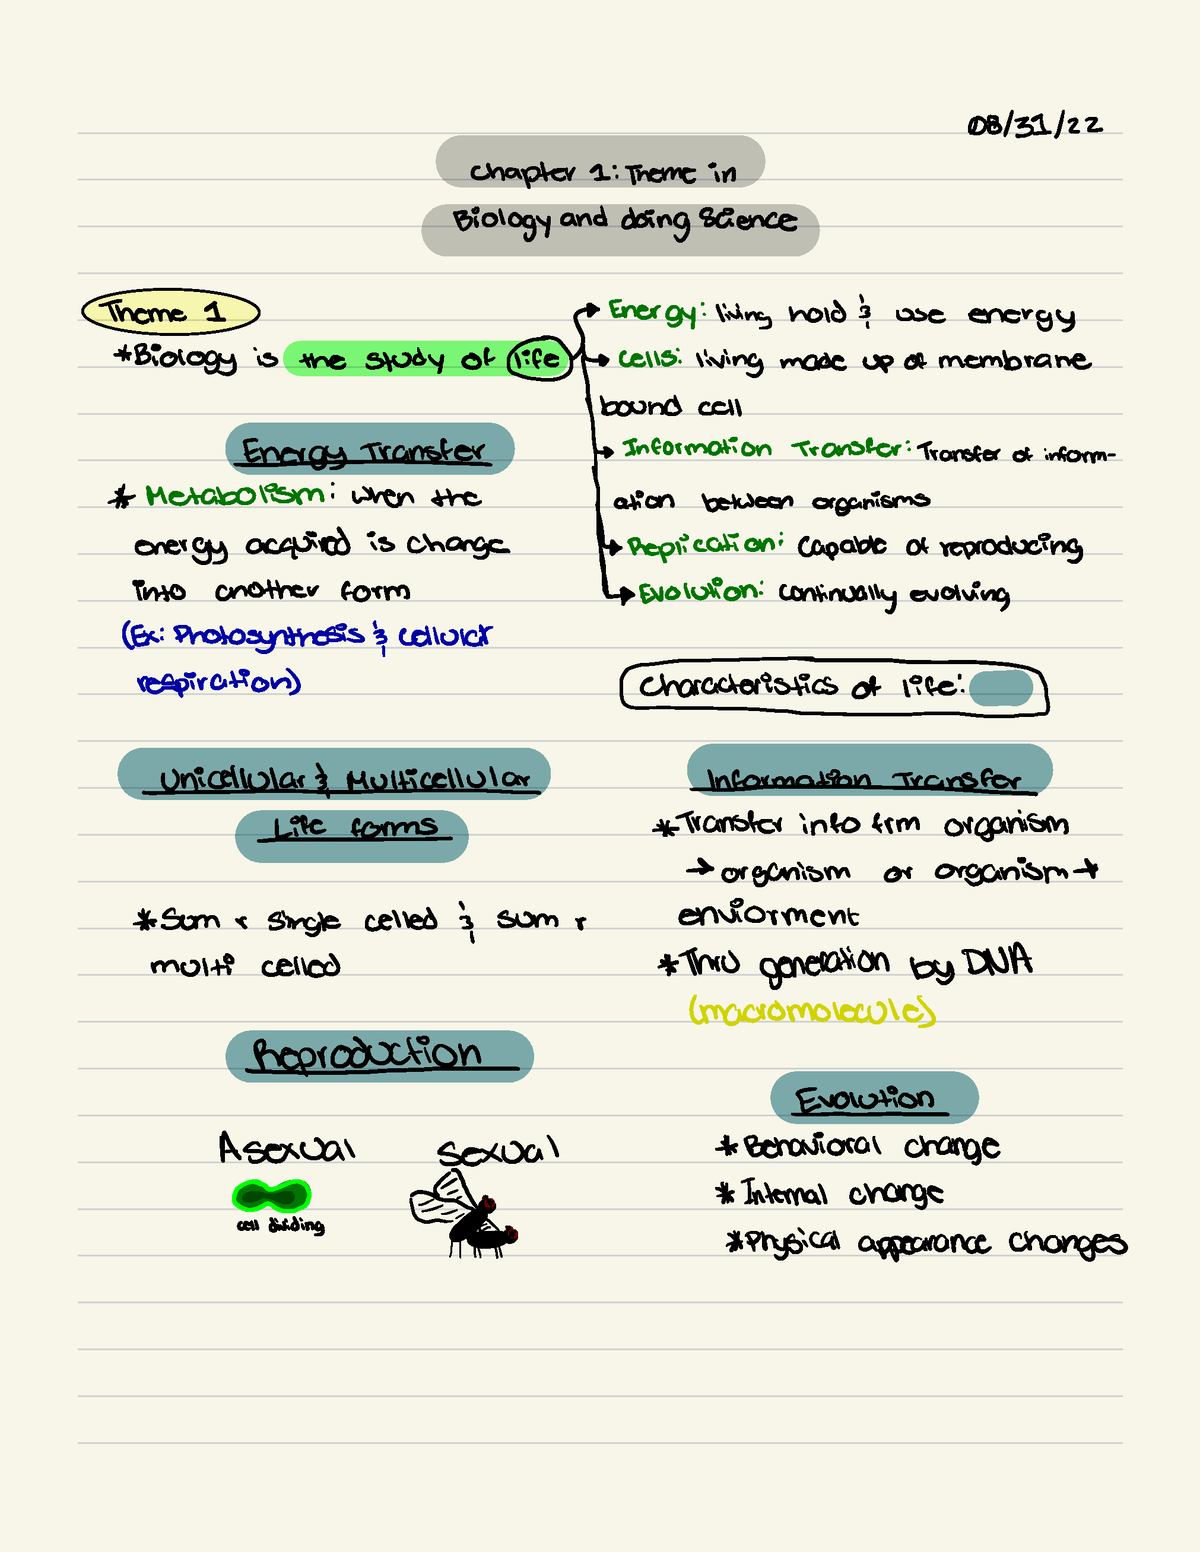 08/31/22
Chapter 1: Theme in
Biology and doing Science
Theme 1
*Biology is the study of life
→ Energy: living hold & use energy
→ Cells: living made up of membrane
bound cell
→ Information Transfer: Transfer of inform-
ation between organisms
→ Replication: Capable of reproducing
→ Evolution: Continually evolving
Energy Transfer
* Metabolism: when the
energy acquired is change
into another form
(Ex: Photosynthesis & cellular
respiration)
Characteristics of life:
Unicellular & Multicellular
Life forms
*Sum r single celled & sum r
multi celled
Information Transfer
*Transfer info frm organism
→ organism or organism →
enviorment
*Thru generation by DNA
(macromolecule)
Reproduction
Asexual Sexual
cell dividing
Evolution
*Behavioral change
*Internal change
*Physical appearance changes